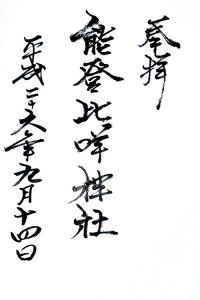 奉拝
能登比咩神社
平成二十六年九月十四日